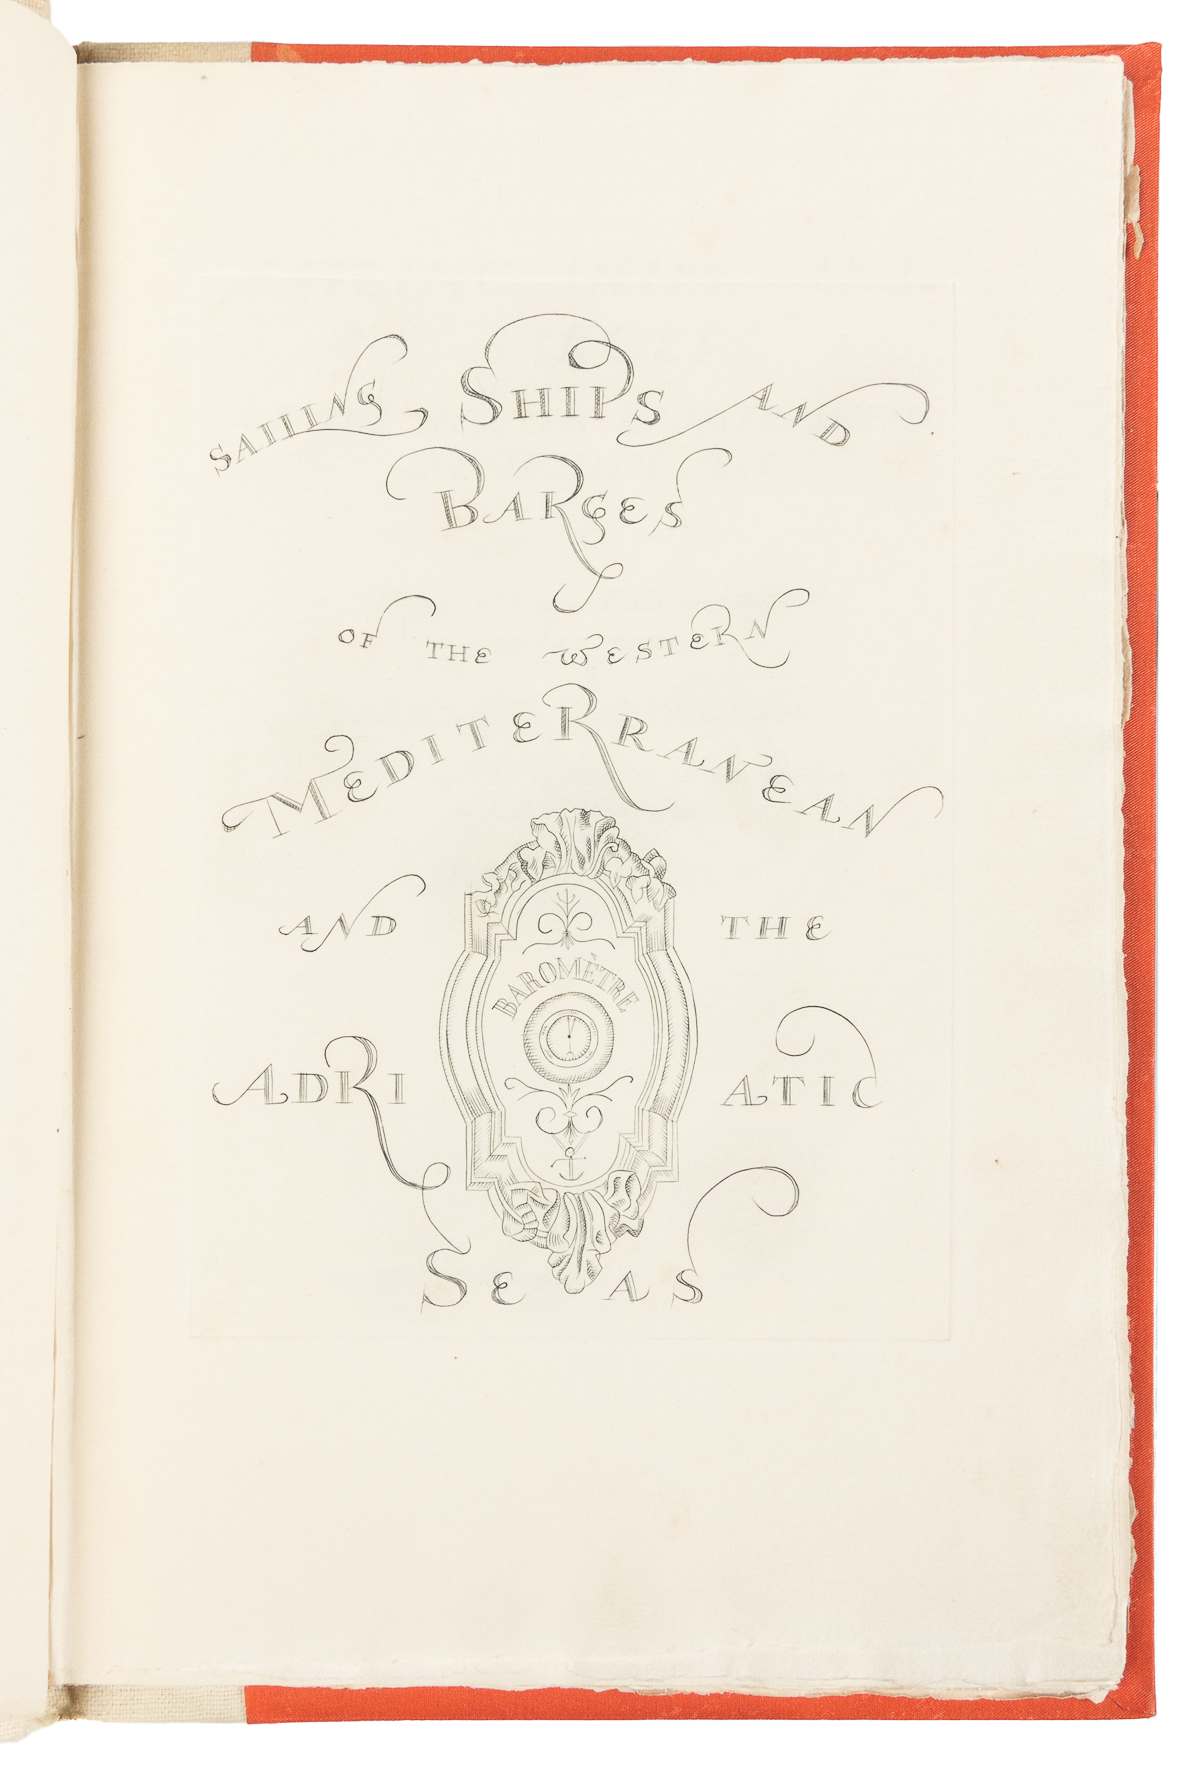 SAILING SHIPS AND
BARGES
OF THE WESTERN
MEDITERRANEAN
AND THE
BAROMÈTRE
ADRIATIC
SEAS